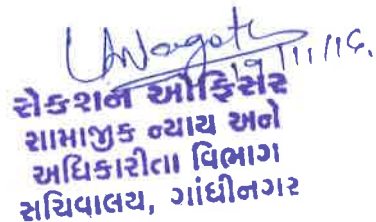 19/11/16.
સેકશન ઓફિસર
સામાજીક ન્યાય અને
અધિકારીતા વિભાગ
સચિવાલય, ગાંધીનગર